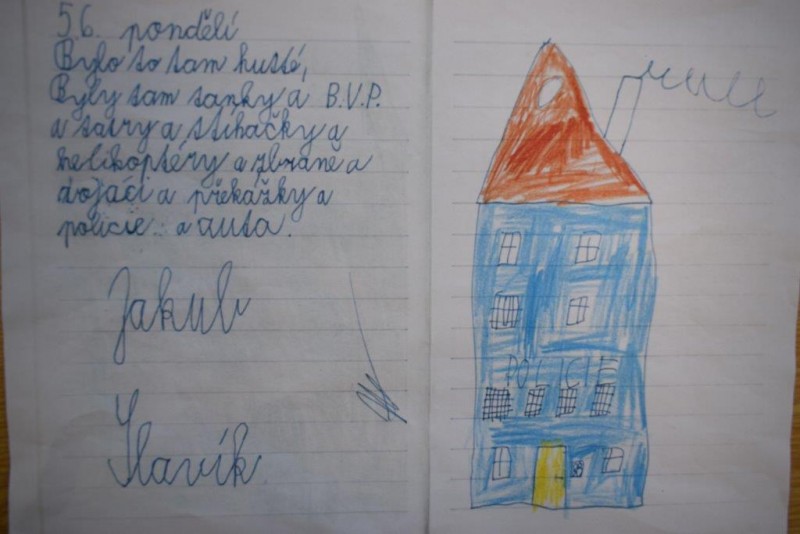 5.6. pondělí
Bylo to tam husté,
Byly tam tanky a B.V.P.
a tatry a stíhačky a
helikoptéry a zbraně a
vojáci a překážky a
policie a auta.
Jakub
Slavík
POLICIE